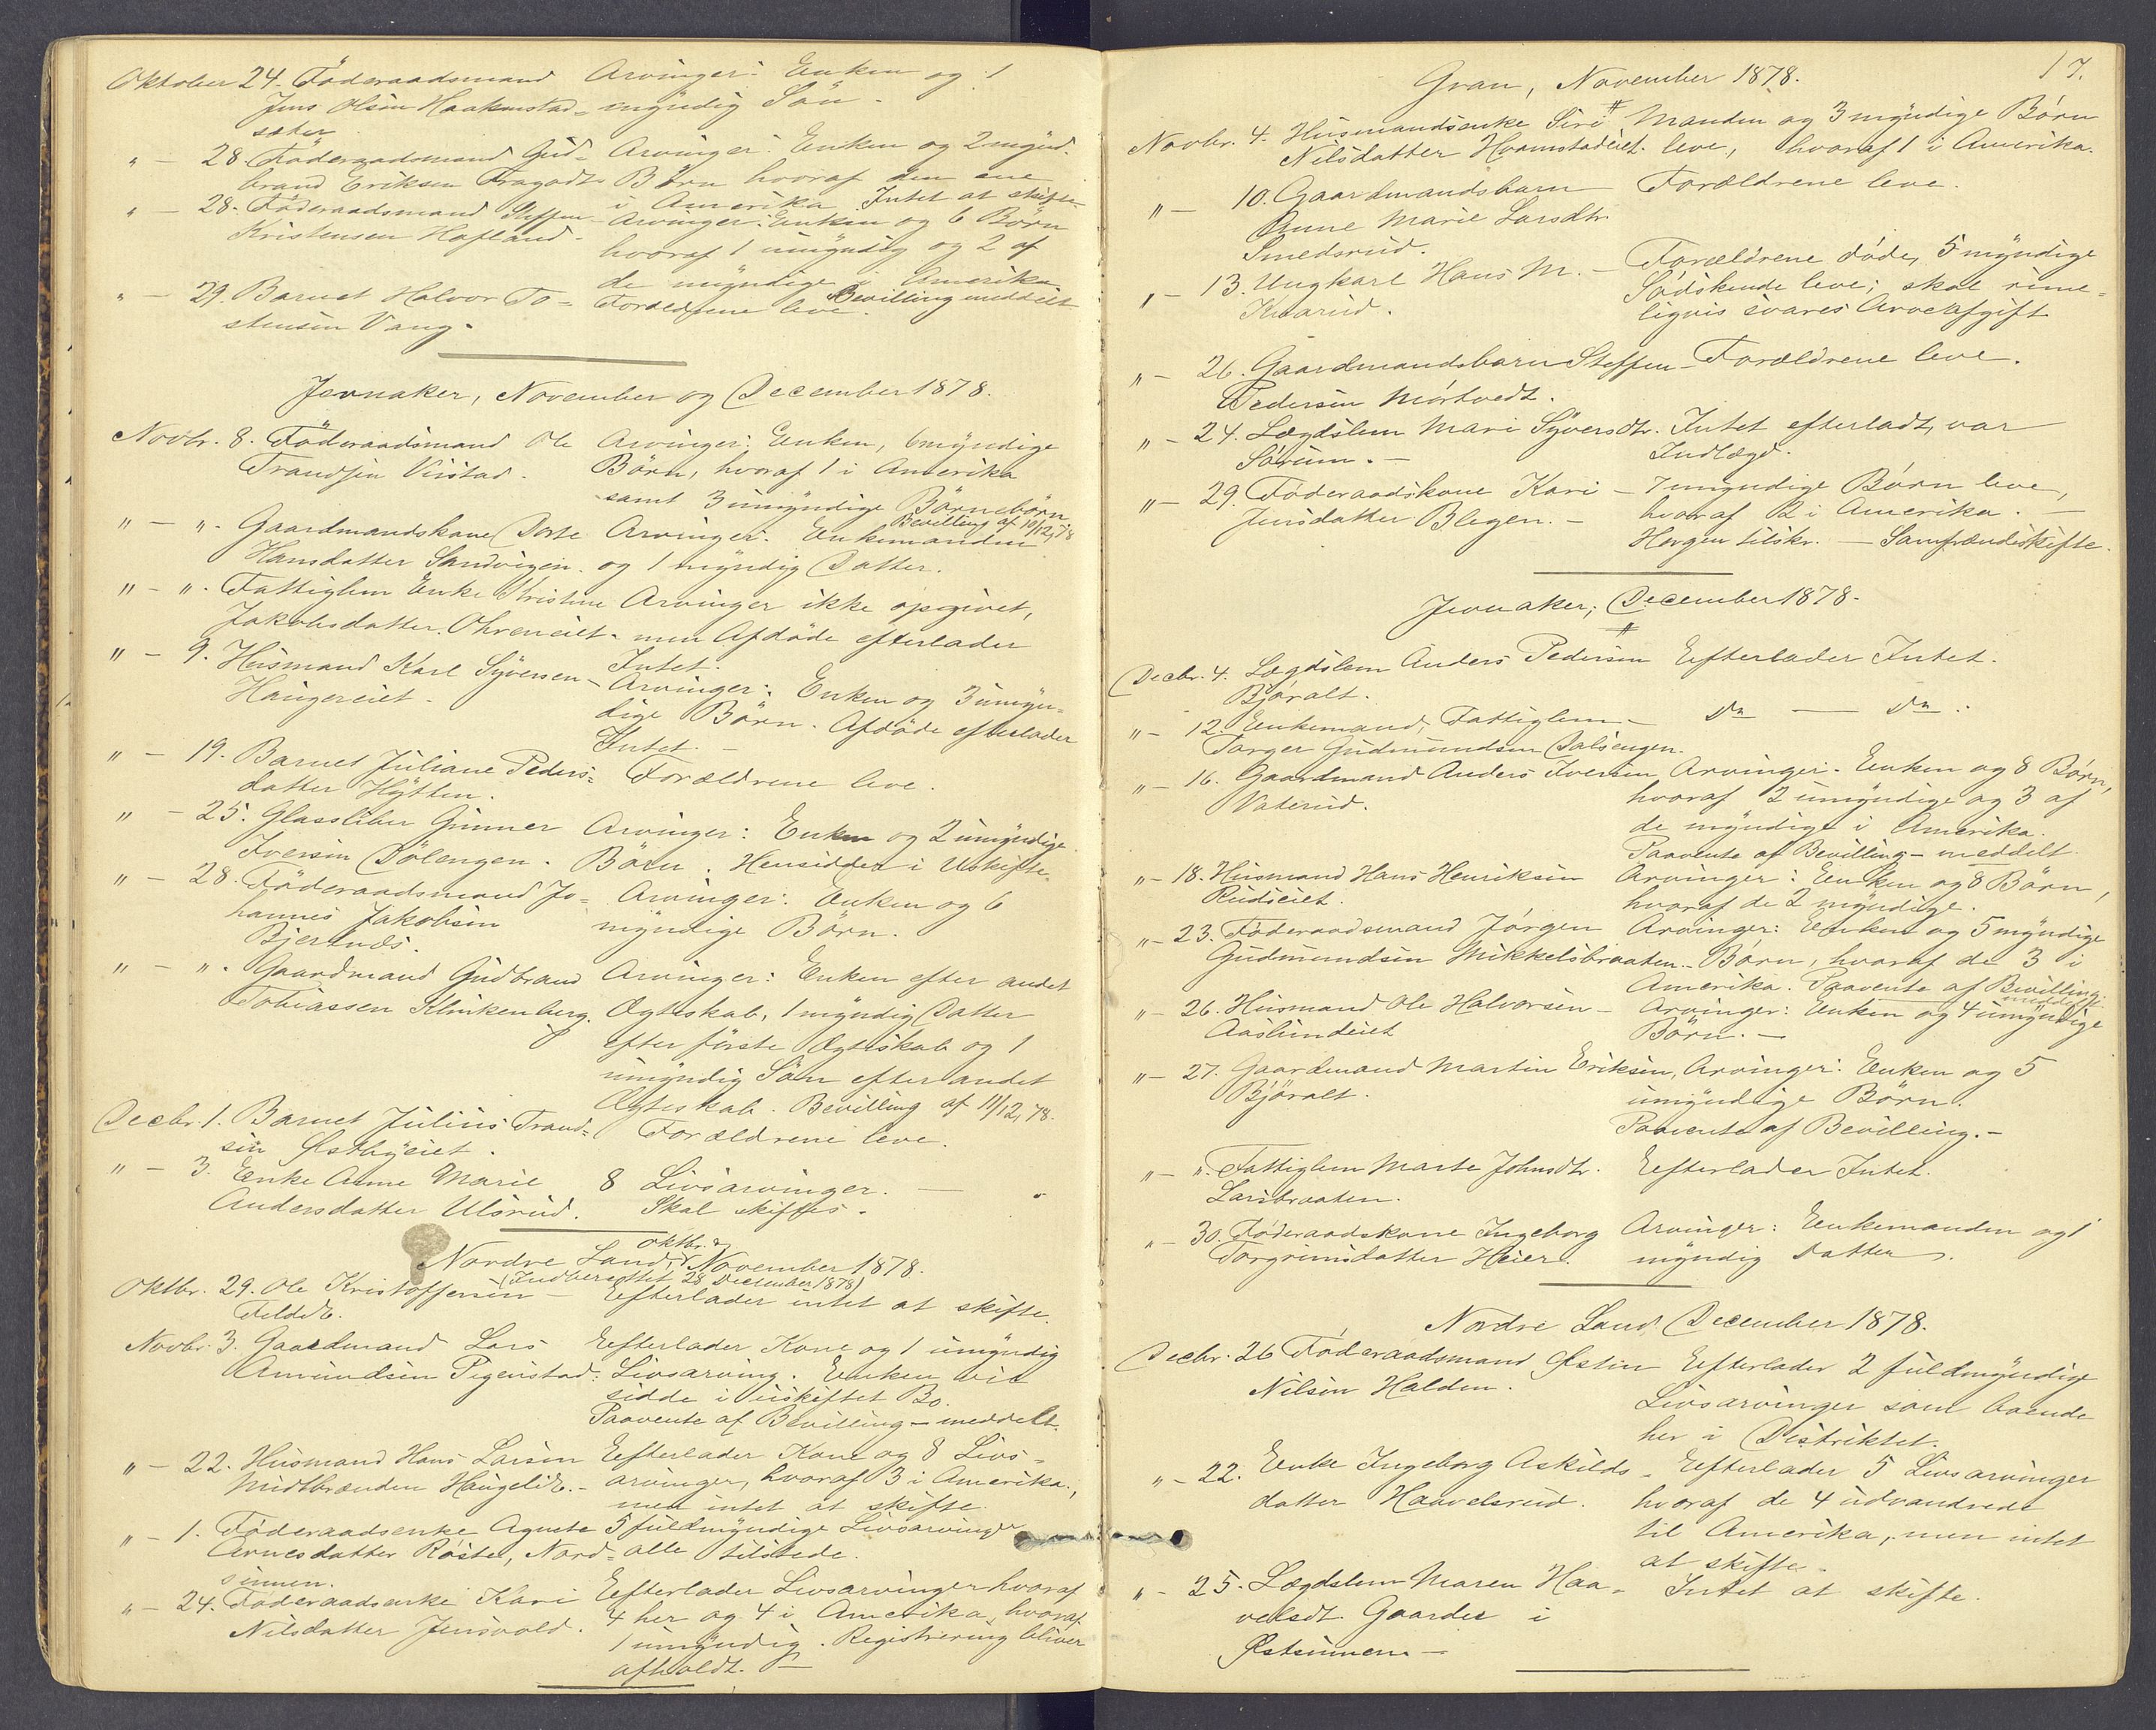 Oktober 24. Föderaadsmand Arvinger: Enken og 1
Jens Olsen Haakenstad- myndig Sön.
sæter
" — 28. Föderaadsmand Gud- Arvinger: Enken og 2 mynd.
brand Eriksen Fragodt Börn hvoraf den ene
i Amerika. Intet at skifte.
" — 28. Föderaadsmand Steffen Arvinger: Enken og 6 Börn
Kristensen Hofland. hvoraf 1 umyndig og 2 af
de myndige i Amerika.
Bevilling meddelt
" — 29. Barnet Halvor To- Forældrene leve.
stensen Vang.
Jevnaker, November og December 1878.
Novbr. 8. Föderaadsmand Ole Arvinger: Enken, 6 myndige
Trandsen Virstad. Börn, hvoraf 1 i Amerika
samt 3 umyndige Börnebörn.
Bevilling af 10/12,78
" — ". Gaardmandskone Dorte Arvinger: Enkemanden
Hansdatter Sandvigen. og 1 myndig Datter.
" — ". Fattiglem Enke Kristine Arvinger ikke opgivet,
Jakobsdatter Ohreneiet. men Afdöde efterlader
Intet.
" — 9. Husmand Karl Syversen Arvinger: Enken og 3 umyn-
Haugereiet. dige Börn. Afdöde efterlader
Intet. —
" — 19. Barnet Juliane Peders- Forældrene leve.
datter Hytten.
" — 25. Glassliber Gunner Arvinger: Enken og 2 umyndige
Iversen Dölengen. Börn. Hensidder i Uskifte.
" — 28. Föderaadsmand Jo- Arvinger: Enken og 6
hannes Jakobsen myndige Börn.
Bjertnes.
" — ". Gaardmand Gudbrand Arvinger: Enken efter andet
Tobiassen Klinkenberg. Ægteskab, 1 myndig Datter
efter förste Ægteskab og 1
umyndig Sön efter andet
Ægteskab. Bevilling af 11/12,78.
Decbr. 1. Barnet Julius Trand- Forældrene leve.
sen Østbyeiet.
" — 3. Enke Anne Marie 8 Livsarvinger. —
Andersdatter Ulsrud. Skal skiftes.
Nordre Land, Oktbr. & November 1878.
(Indberettet 28 December 1878)
Oktbr. 29. Ole Kristoffersen — Efterlader intet at skifte.
Novbr. 3. Gaardmand Lars Efterlader Kone og 1 umyndig
Amundsen Pigenstad. Livsarving. Enken vil
sidde i uskiftet Bo.
Paavente af Bevilling — meddelt.
" — 22. Husmand Hans Larsen Efterlader Kone og 8 Livs-
Midtbrænden Haugelie. — arvinger, hvoraf 3 i Amerika,
men intet at skifte.
" — 1. Föderaadsenke Agnete 5 fuldmyndige Livsarvinger
Arnesdatter Röste, Nord- alle tilstede.
sinnen.
" — 24. Föderaadsenke Kari Efterlader Livsarvinger hvoraf
Nilsdatter Jensvold. 4 her og 4 i Amerika, hvoraf
1 umyndig. Registrering bliver
afholdt. —
17.
Gran, November 1878.
Novbr. 4. Husmandsenke Siri Manden og 3 myndige Börn
Nilsdatter Hvamstadeiet. leve, hvoraf 1 i Amerika.
" — 10. Gaardmandsbarn Forældrene leve.
Anne Marie Larsdtr.
Smedsrud.
" — 13. Ungkarl Hans M. — Forældrene döde, 5 myndige
Knarud. Södskende leve; skal rime-
ligvis svares Arveafgift
" — 26. Gaardmandsbarn Steffen Forældrene leve.
Pedersen Mörtvedt.
" — 24. Lægdslem Mari Syversdtr. Intet efterladt, var
Sörum. — Indlægd.
" — 29. Föderaadskone Kari — 7 myndige Börn leve,
Jensdatter Blegen. — hvoraf 2 i Amerika. —
Horgen tilskr. — Samfrændeskifte.
Jevnaker, December 1878.
Decbr. 4. Lægdslem Anders Pedersen Efterlader Intet.
Björalt.
" — 12. Enkemand, Fattiglem — Do — Do.
Torger Gudmundsen Dalsengen.
" — 16. Gaardmand Anders Iversen Arvinger: Enken og 8 Börn,
Vaterud. hvoraf 2 umyndige og 3 af
de myndige i Amerika.
Paavente af Bevilling — meddelt
" — 18. Husmand Hans Henriksen Arvinger: Enken og 8 Börn,
Rudseiet. hvoraf de 2 myndige.
" — 23. Föderaadsmand Jörgen Arvinger: Enken og 5 myndige
Gudmundsen Mikkelsbraaten. Börn, hvoraf de 3 i
Amerika. Paavente af Bevilling.
meddelt
" — 26. Husmand Ole Halvorsen — Arvinger: Enken og 4 umyndige
Aaslundeiet Börn. —
" — 27. Gaardmand Martin Eriksen, Arvinger: Enken og 5
Björalt. umyndige Börn.
Paavente af Bevilling. —
" — ". Fattiglem Marte Johnsdtr. Efterlader Intet.
Larsbraaten.
" — 30. Föderaadskone Ingeborg Arvinger: Enkemanden og 1
Torgrimsdatter Heier. myndig Datter.
Nordre Land December 1878.
Decbr. 26 Föderaadsmand Østen Efterlader 2 fuldmyndige
Nilsen Halden. Livsarvinger som boende
her i Distriktet.
" — 22. Enke Ingeborg Askilds- Efterlader 5 Livsarvinger
datter Haavelsrud. hvoraf de 4 udvandrede
til Amerika, men intet
at skifte.
" — 25. Lægdslem Maren Haa- Intet at skifte.
velsdt. Gaarder i
Østsinnen —